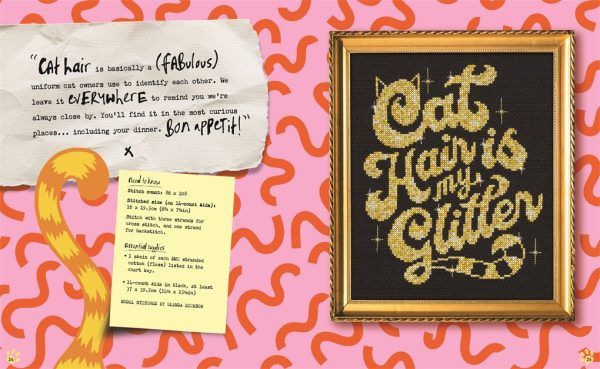 "Cat hair is basically a (fabulous)
uniform cat owners use to identify each other. We
leave it everywhere to remind you we're
always close by. You'll find it in the most curious
places... including your dinner. Bon appetit!"
x
Need to know
Stitch count: 86 x 108
Stitched size (on 14-count Aida):
16 x 19.5cm (6¼ x 7¾in)
Stitch with three strands for
cross stitch, and one strand
for backstitch.
Essential supplies
• 1 skein of each DMC stranded
cotton (floss) listed in the
chart key.
• 14-count Aida in black, at least
37 x 39.5cm
MODEL STITCHED BY
Cat
Hair is
my
Glitter